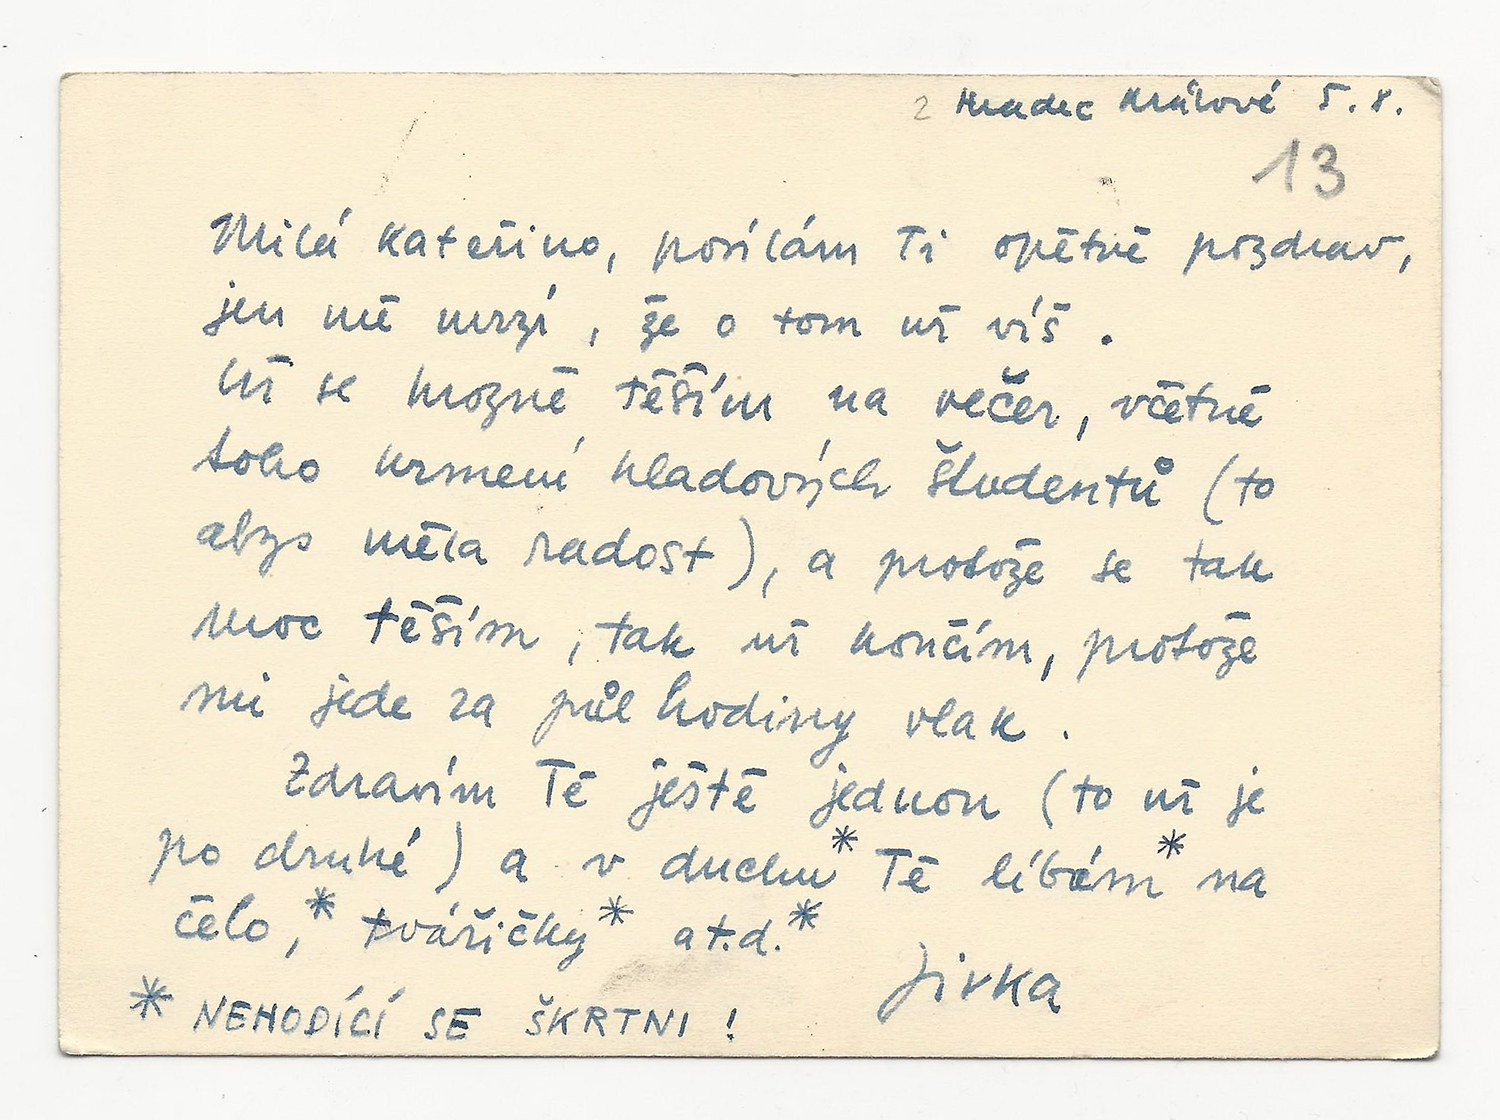 2 Hradec Králové 5. 8.
13
Milá Kateřino, posílám Ti opětně pozdrav,
jen mě mrzí, že o tom už víš.
Už se hrozně těším na večer, včetně
toho krmení hladových študentů (to
abys měla radost), a protože se tak
moc těším, tak už končím, protože
mi jede za půl hodiny vlak.
Zdravím Tě ještě jednou (to už je
po druhé) a v duchu* Tě líbám* na
čelo,* tvářičky* a t.d.*
Jirka
* NEHODÍCÍ SE ŠKRTNI!